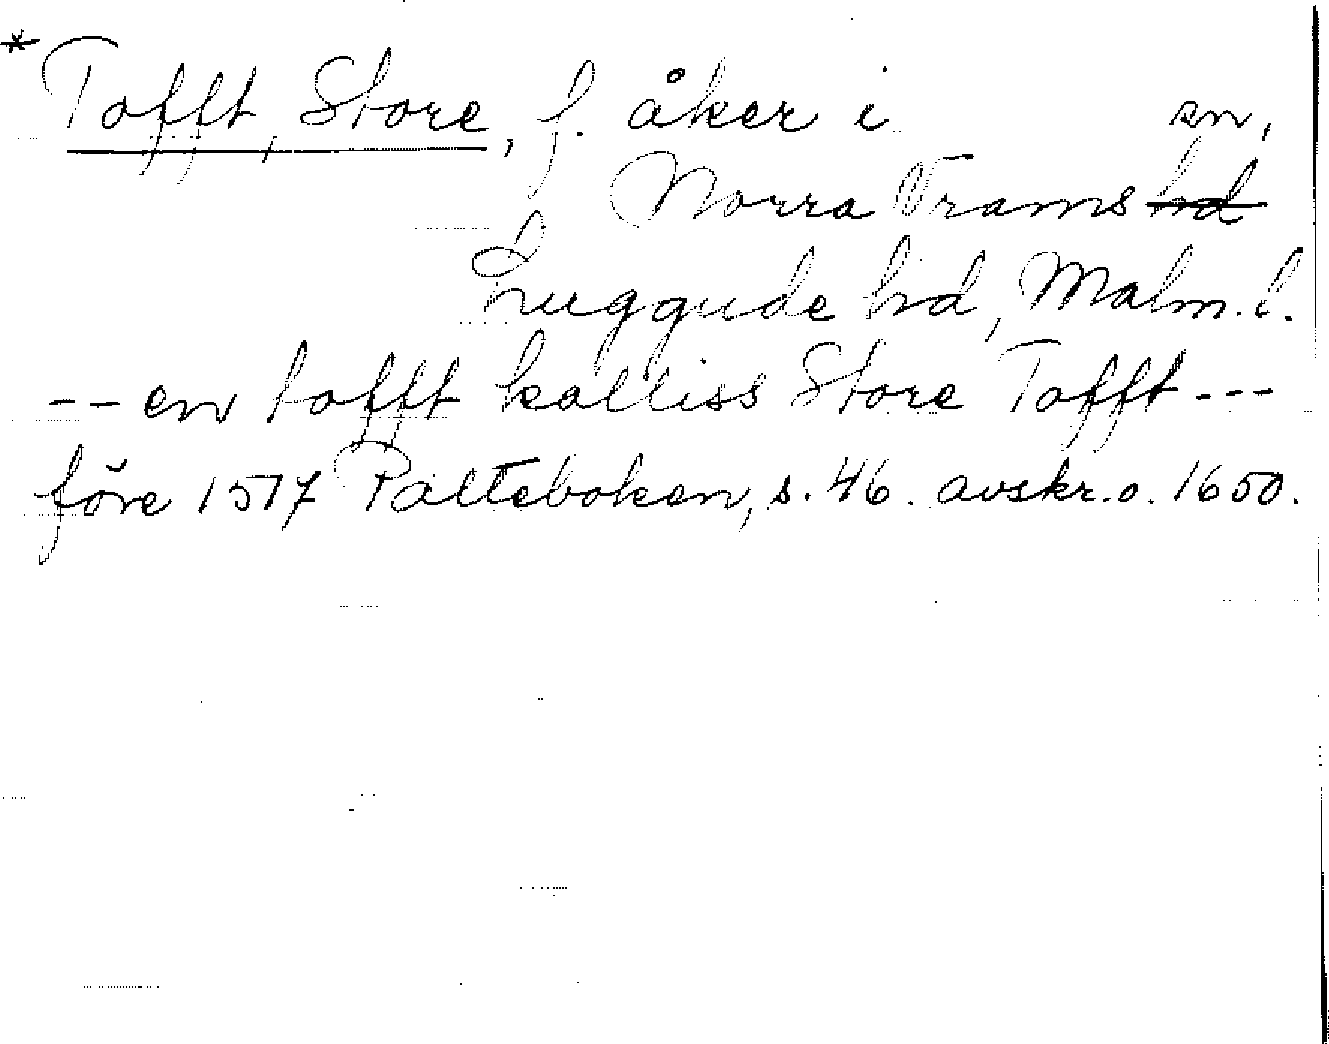 *Tofft, Store, f. åker i sn,
Norra Vrams hd
Luggude hd, Malm. l.
-- en tofft kalliss Store Tofft ---
före 1517 Palteboken, s. 46. avskr. o. 1650.